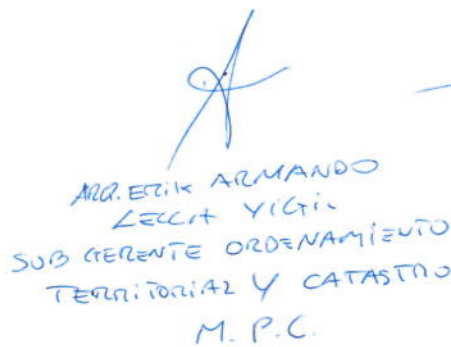 ARQ. ERIK ARMANDO
LECCA VIGIL
SUB GERENTE ORDENAMIENTO
TERRITORIAL Y CATASTRO
M. P. C.